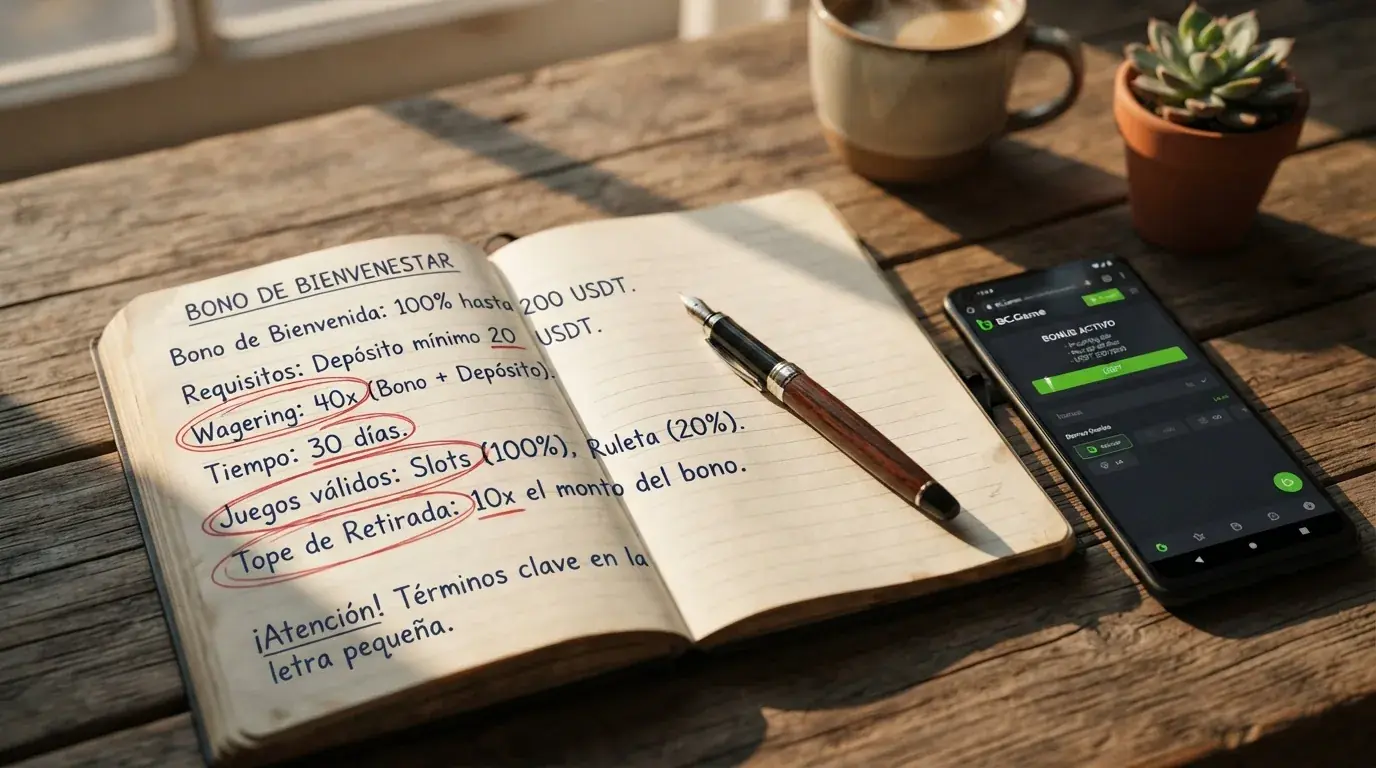 BONO DE BIENVENESTAR
Bono de Bienvenida: 100% hasta 200 USDT.
Requisitos: Depósito mínimo 20 USDT.
Wagering: 40x (Bono + Depósito).
Tiempo: 30 días.
Juegos válidos: Slots (100%), Ruleta (20%).
Tope de Retirada: 10x el monto del bono.
¡Atención! Términos clave en la
letra pequeña.
BC.Game
BONUS ACTIVO